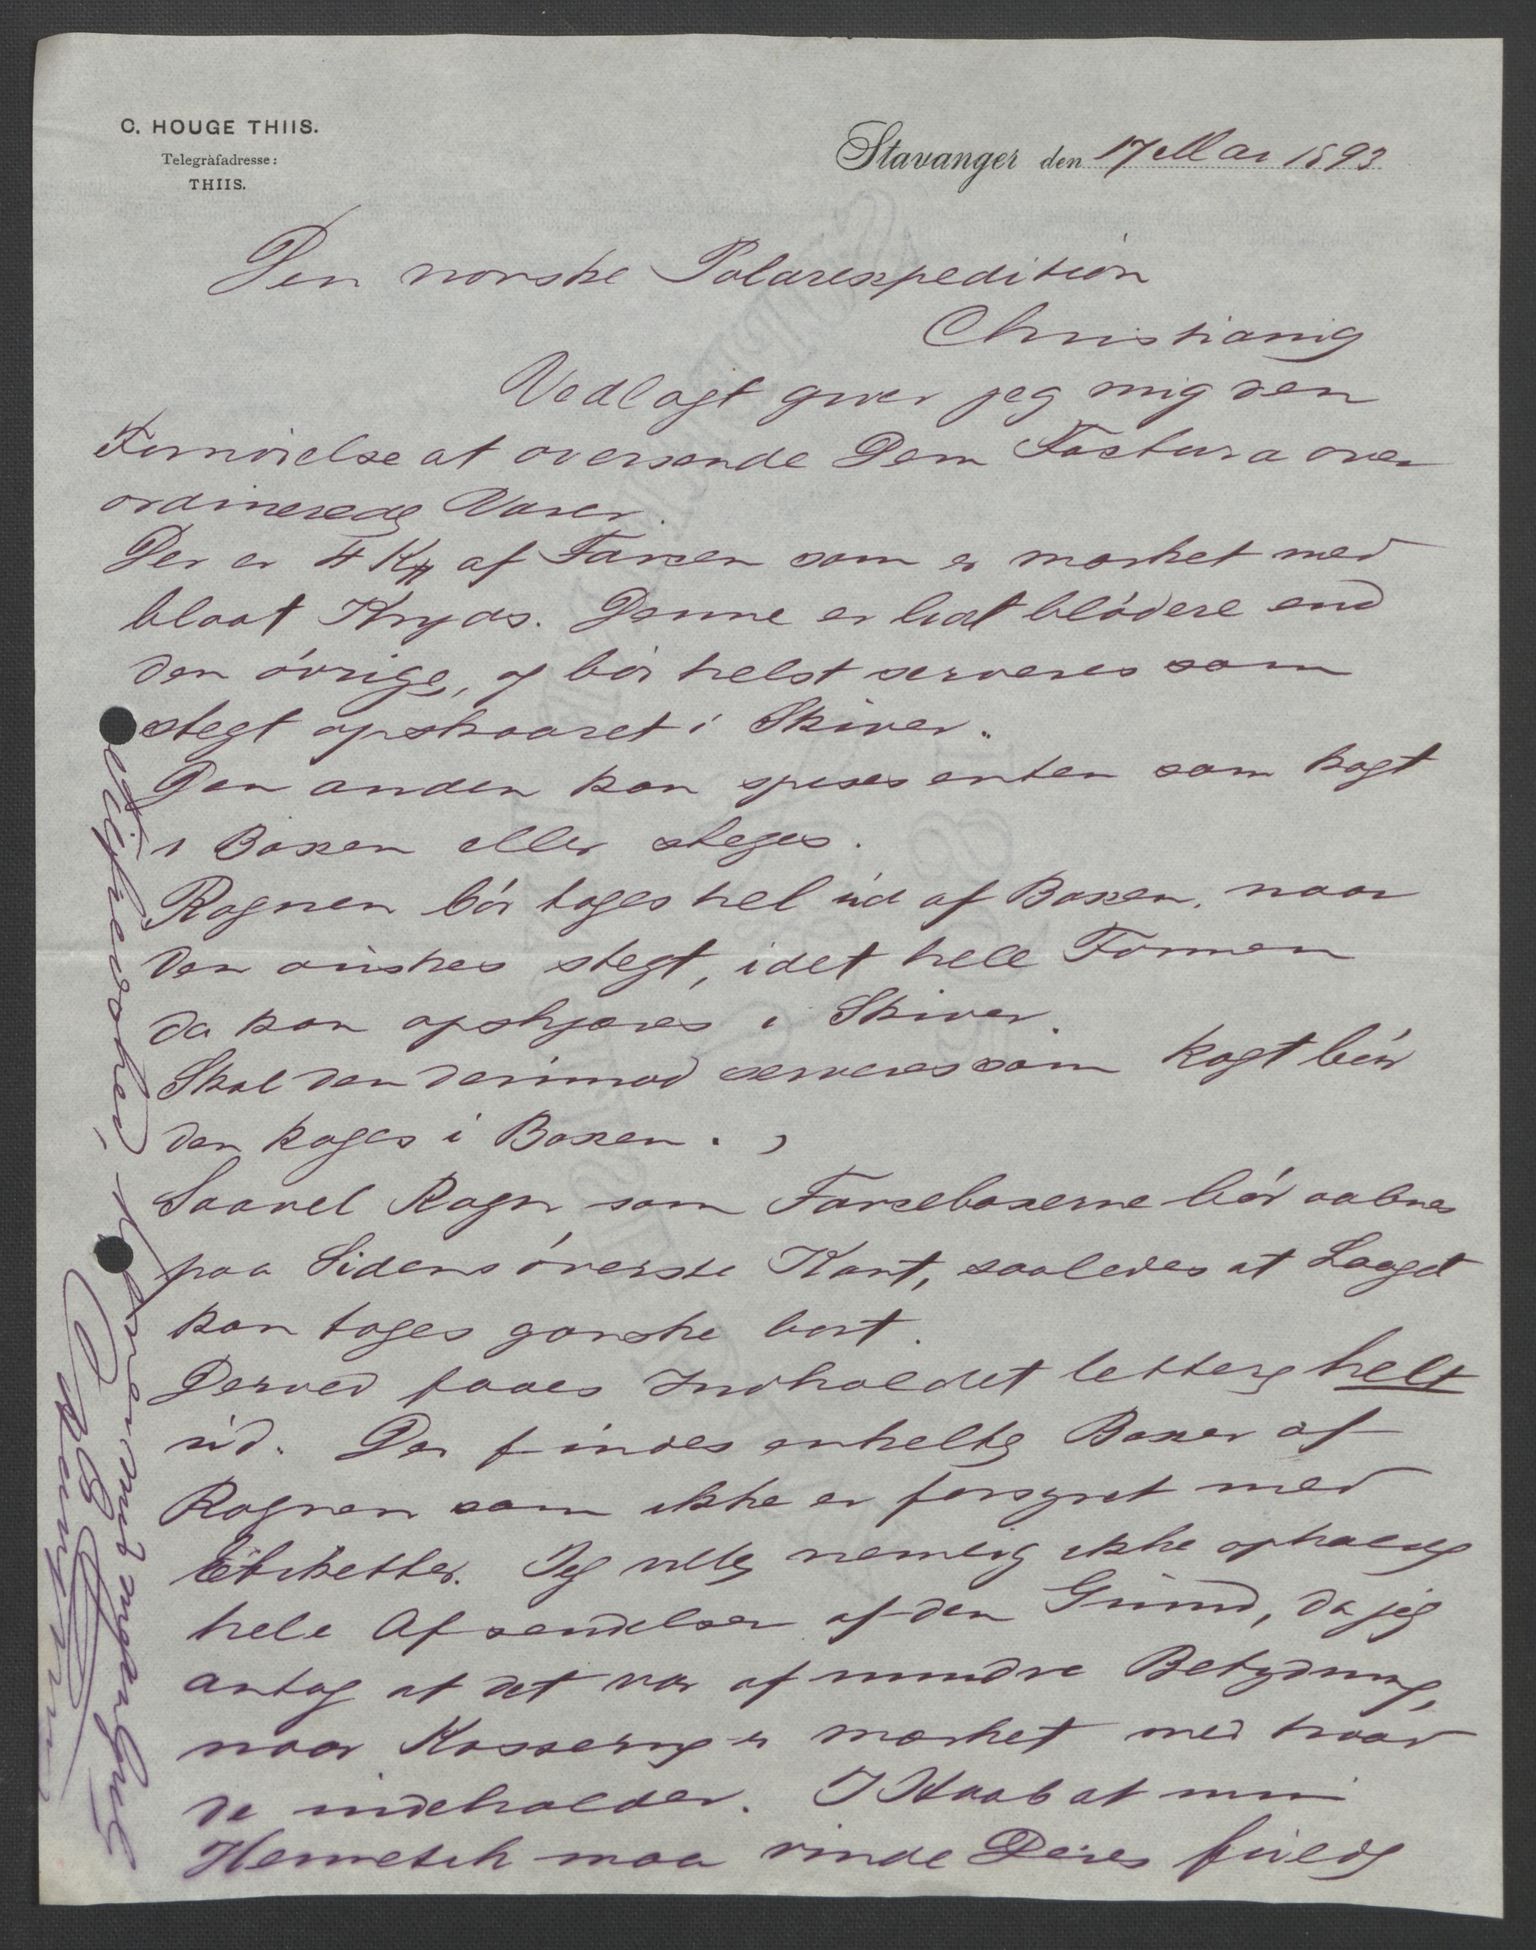 C. HOUGE THIIS.
Telegrafadresse:
THIIS.
Stavanger den 17 Mai 1893
Den norske Polarexpedition
Christiania
Vedlagt giver jeg mig den
Fornöielse at oversende Dem Factura over
ordinerede Varer.
Der er 4 Ks af Farcen som er mærket med
blaat Kryds. Denne er lidt blödere end
den övrige, og bör helst serveres som
stegt opskaaret i Skiver.
Den anden kan spises enten som kogt
i Boxen eller steges.
Rognen bör tages hel ud af Boxen, naar
den önskes stegt, idet hele Formen
da kan opskjæres i Skiver.
Skal den derimod serveres som kogt bör
den koges i Boxen.
Saavel Rogn som Farceboxerne bör aabnes
paa Sidens överste Kant, saaledes at Laaget
kan tages ganske bort.
Derved faaes Indholdet lettere helt
ud. Der findes enkelte Boxer af
Rognen som ikke er forsynet med
Etiketter. Jeg vilde nemlig ikke opholde
hele Afsendelsen af den Grund, da jeg
antog at det var af mindre Betydning,
naar Kasserne er mærket med hvad
de indeholder. I Haab at min
Hermetik maa vinde Deres fulde
Tilfredshed,